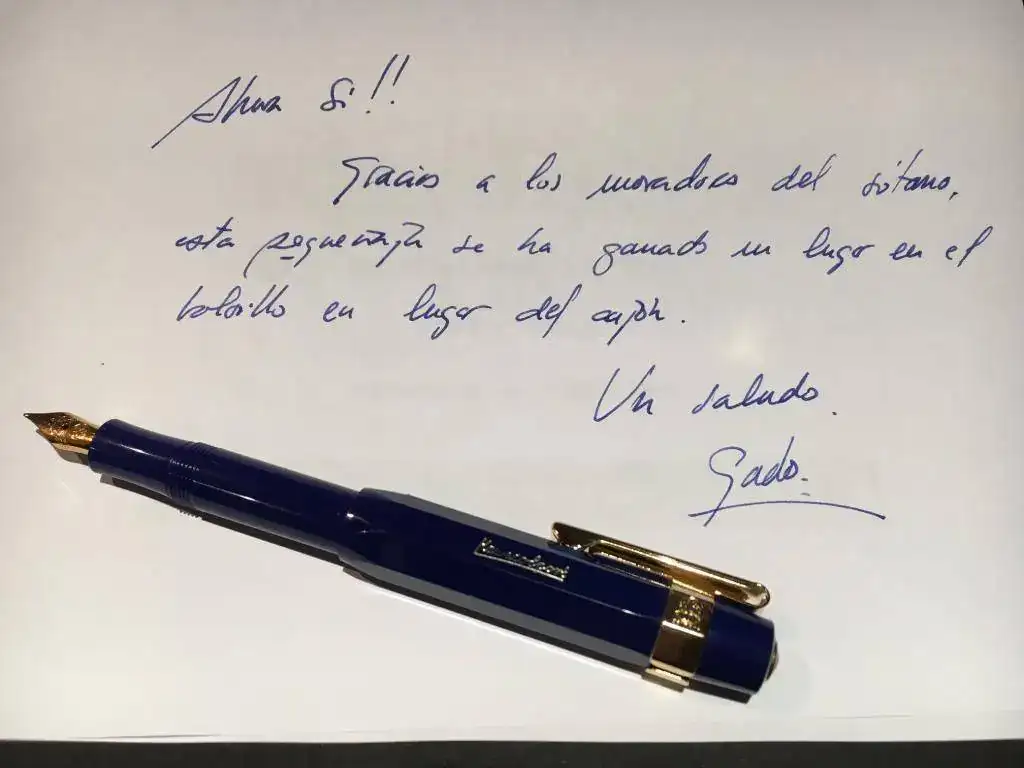 Ahora Si!!
Gracias a los moradores del sótano,
esta pequeñaja se ha ganado un lugar en el
bolsillo en lugar del cajón.
Un saludo.
Gado.